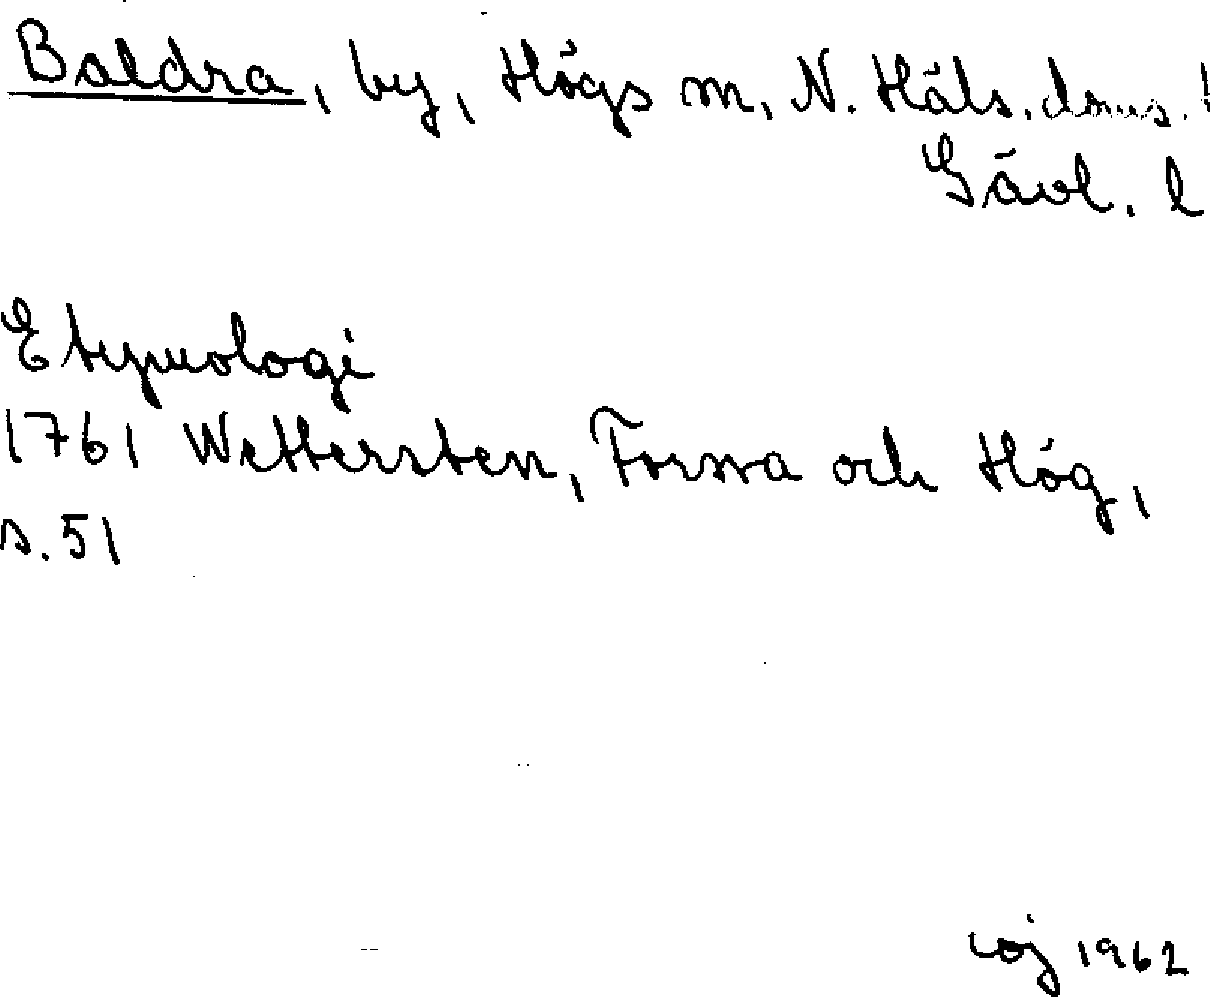 Baldra, by, Högs sn, N. Häls. doms.!
Gävl. l
Etymologi
1761 Wettersten, Forssa och Hög,
s. 51
1962